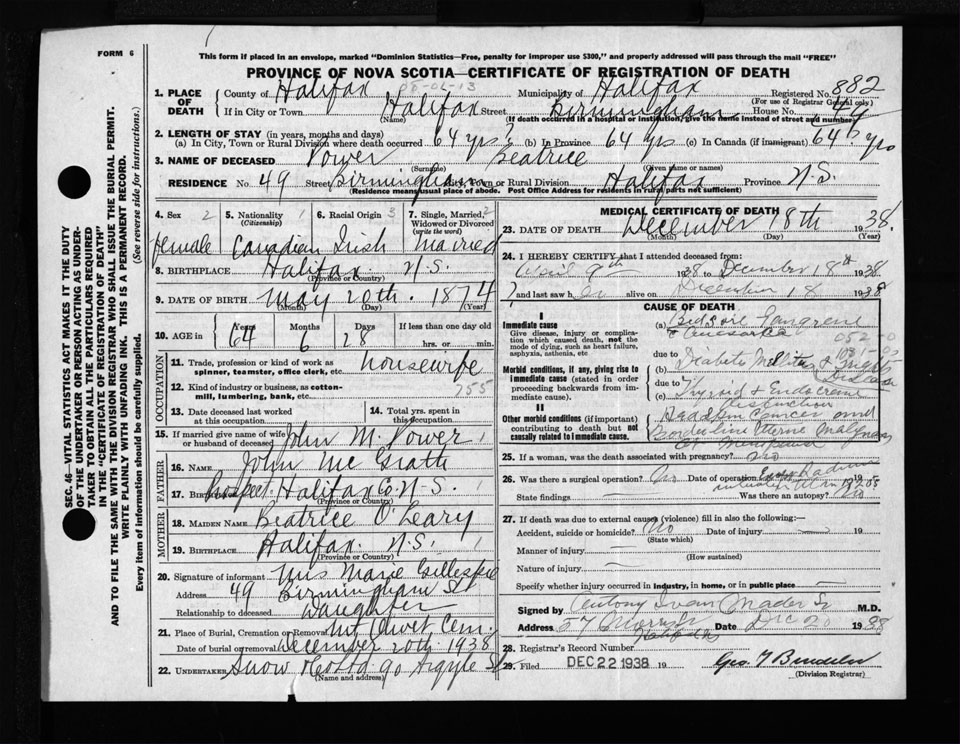 FORM 6
This form if placed in an envelope, marked "Dominion Statistics—Free, penalty for improper use $300," and properly addressed will pass through the mail "FREE"
PROVINCE OF NOVA SCOTIA—CERTIFICATE OF REGISTRATION OF DEATH
1. PLACE OF DEATH County of Halifax Municipality of Halifax Registered No. 882
(For use of Registrar General only)
If in City or Town Halifax Street Birmingham House No. 49
(Name) (If death occurred in a hospital or institution, give the name instead of street and number)
2. LENGTH OF STAY (in years, months and days)
(a) In City, Town or Rural Division where death occurred 64 yrs (b) In Province 64 yrs (c) In Canada (if immigrant) 64 yrs
3. NAME OF DECEASED Power Beatrice
(Surname) (Given name or names)
RESIDENCE No. 49 Street Birmingham City, Town or Rural Division Halifax Province N.S.
(Residence means usual place of abode. Post Office Address for residents in rural parts not sufficient)
4. Sex 2 female
5. Nationality (Citizenship) Canadian
6. Racial Origin 3 Irish
7. Single, Married, Widowed or Divorced (write the word) married
8. BIRTHPLACE Halifax N.S.
(Province or Country)
9. DATE OF BIRTH May 20th. 1874
(Month) (Day) (Year)
10. AGE in Years 64 Months 6 Days 28 If less than one day old
hrs. or min.
OCCUPATION
11. Trade, profession or kind of work as spinner, teamster, office clerk, etc. housewife
12. Kind of industry or business, as cotton-mill, lumbering, bank, etc. 755
13. Date deceased last worked at this occupation
14. Total yrs. spent in this occupation
15. If married give name of wife or husband of deceased John M. Power
FATHER
16. NAME John Mc Grath
17. BIRTHPLACE Prospect. Halifax Co. N.S.
(Province or Country)
MOTHER
18. MAIDEN NAME Beatrice O'Leary
19. BIRTHPLACE Halifax. N.S.
(Province or Country)
20. Signature of informant Mrs Marie Gillespie
Address 49 Birmingham St
Relationship to deceased Daughter
21. Place of Burial, Cremation or Removal Mt Olivet Cem.
Date of burial or removal December 20th 1938
22. UNDERTAKER Snow & Co Ltd 90 Argyle St
(Name and address)
MEDICAL CERTIFICATE OF DEATH
23. DATE OF DEATH December 18th 1938
(Month) (Day) (Year)
24. I HEREBY CERTIFY that I attended deceased from:
April 9th 1938 to December 18th 1938
and last saw her alive on December 18 1938
CAUSE OF DEATH
I
Immediate cause
Give disease, injury or complication which caused death, not the mode of dying, such as heart failure, asphyxia, asthenia, etc
(a) Bedsore Gangrene
& Anasarca
due to
Morbid conditions, if any, giving rise to immediate cause (stated in order proceeding backwards from immediate cause).
(b) Diabetes Mellitus &
due to
(c) Thyroid & Endocrine
II
Other morbid conditions (if important) contributing to death but not causally related to immediate cause.
Cancer and
Borderline Uterine
25. If a woman, was the death associated with pregnancy? No
26. Was there a surgical operation? No Date of operation
State findings Was there an autopsy? No
27. If death was due to external causes (violence) fill in also the following:—
Accident, suicide or homicide? No Date of injury 19
(State which)
Manner of injury
(How sustained)
Nature of injury
Specify whether injury occurred in industry, in home, or in public place
Signed by Antony Ivan Mader M.D.
Address 57 Morris St Halifax Date Dec 20 1938
28. Registrar's Record Number
29. Filed DEC 22 1938 19
(Division Registrar)
SEC. 46—VITAL STATISTICS ACT MAKES IT THE DUTY
OF THE UNDERTAKER OR PERSON ACTING AS UNDERTAKER TO OBTAIN ALL THE PARTICULARS REQUIRED
IN THE "CERTIFICATE OF REGISTRATION OF DEATH"
AND TO FILE THE SAME WITH THE DIVISION REGISTRAR WHO SHALL ISSUE THE BURIAL PERMIT.
WRITE PLAINLY WITH UNFADING INK. THIS IS A PERMANENT RECORD.
Every item of information should be carefully supplied. (See reverse side for instructions.)